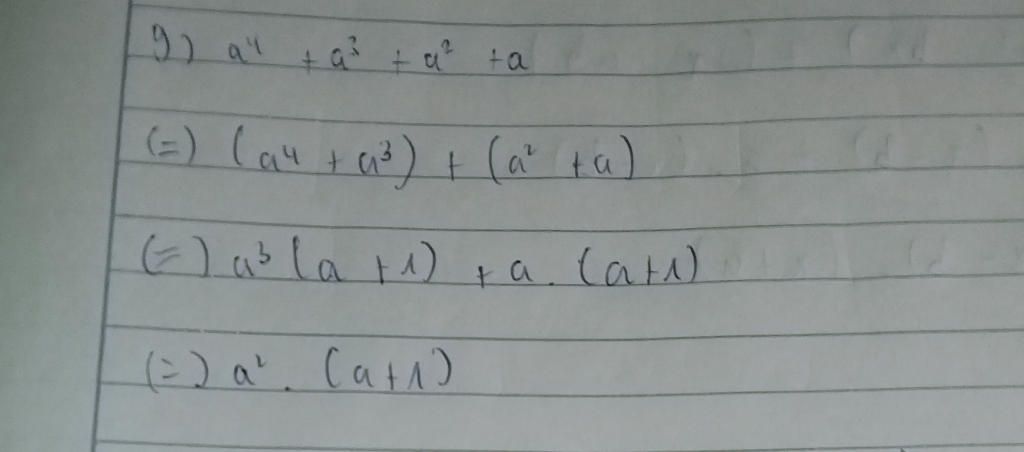 g) a⁴ + a³ + a² + a
(=) (a⁴ + a³) + (a² + a)
(=) a³ (a + 1) + a . (a+1)
(=) a² . (a+1)